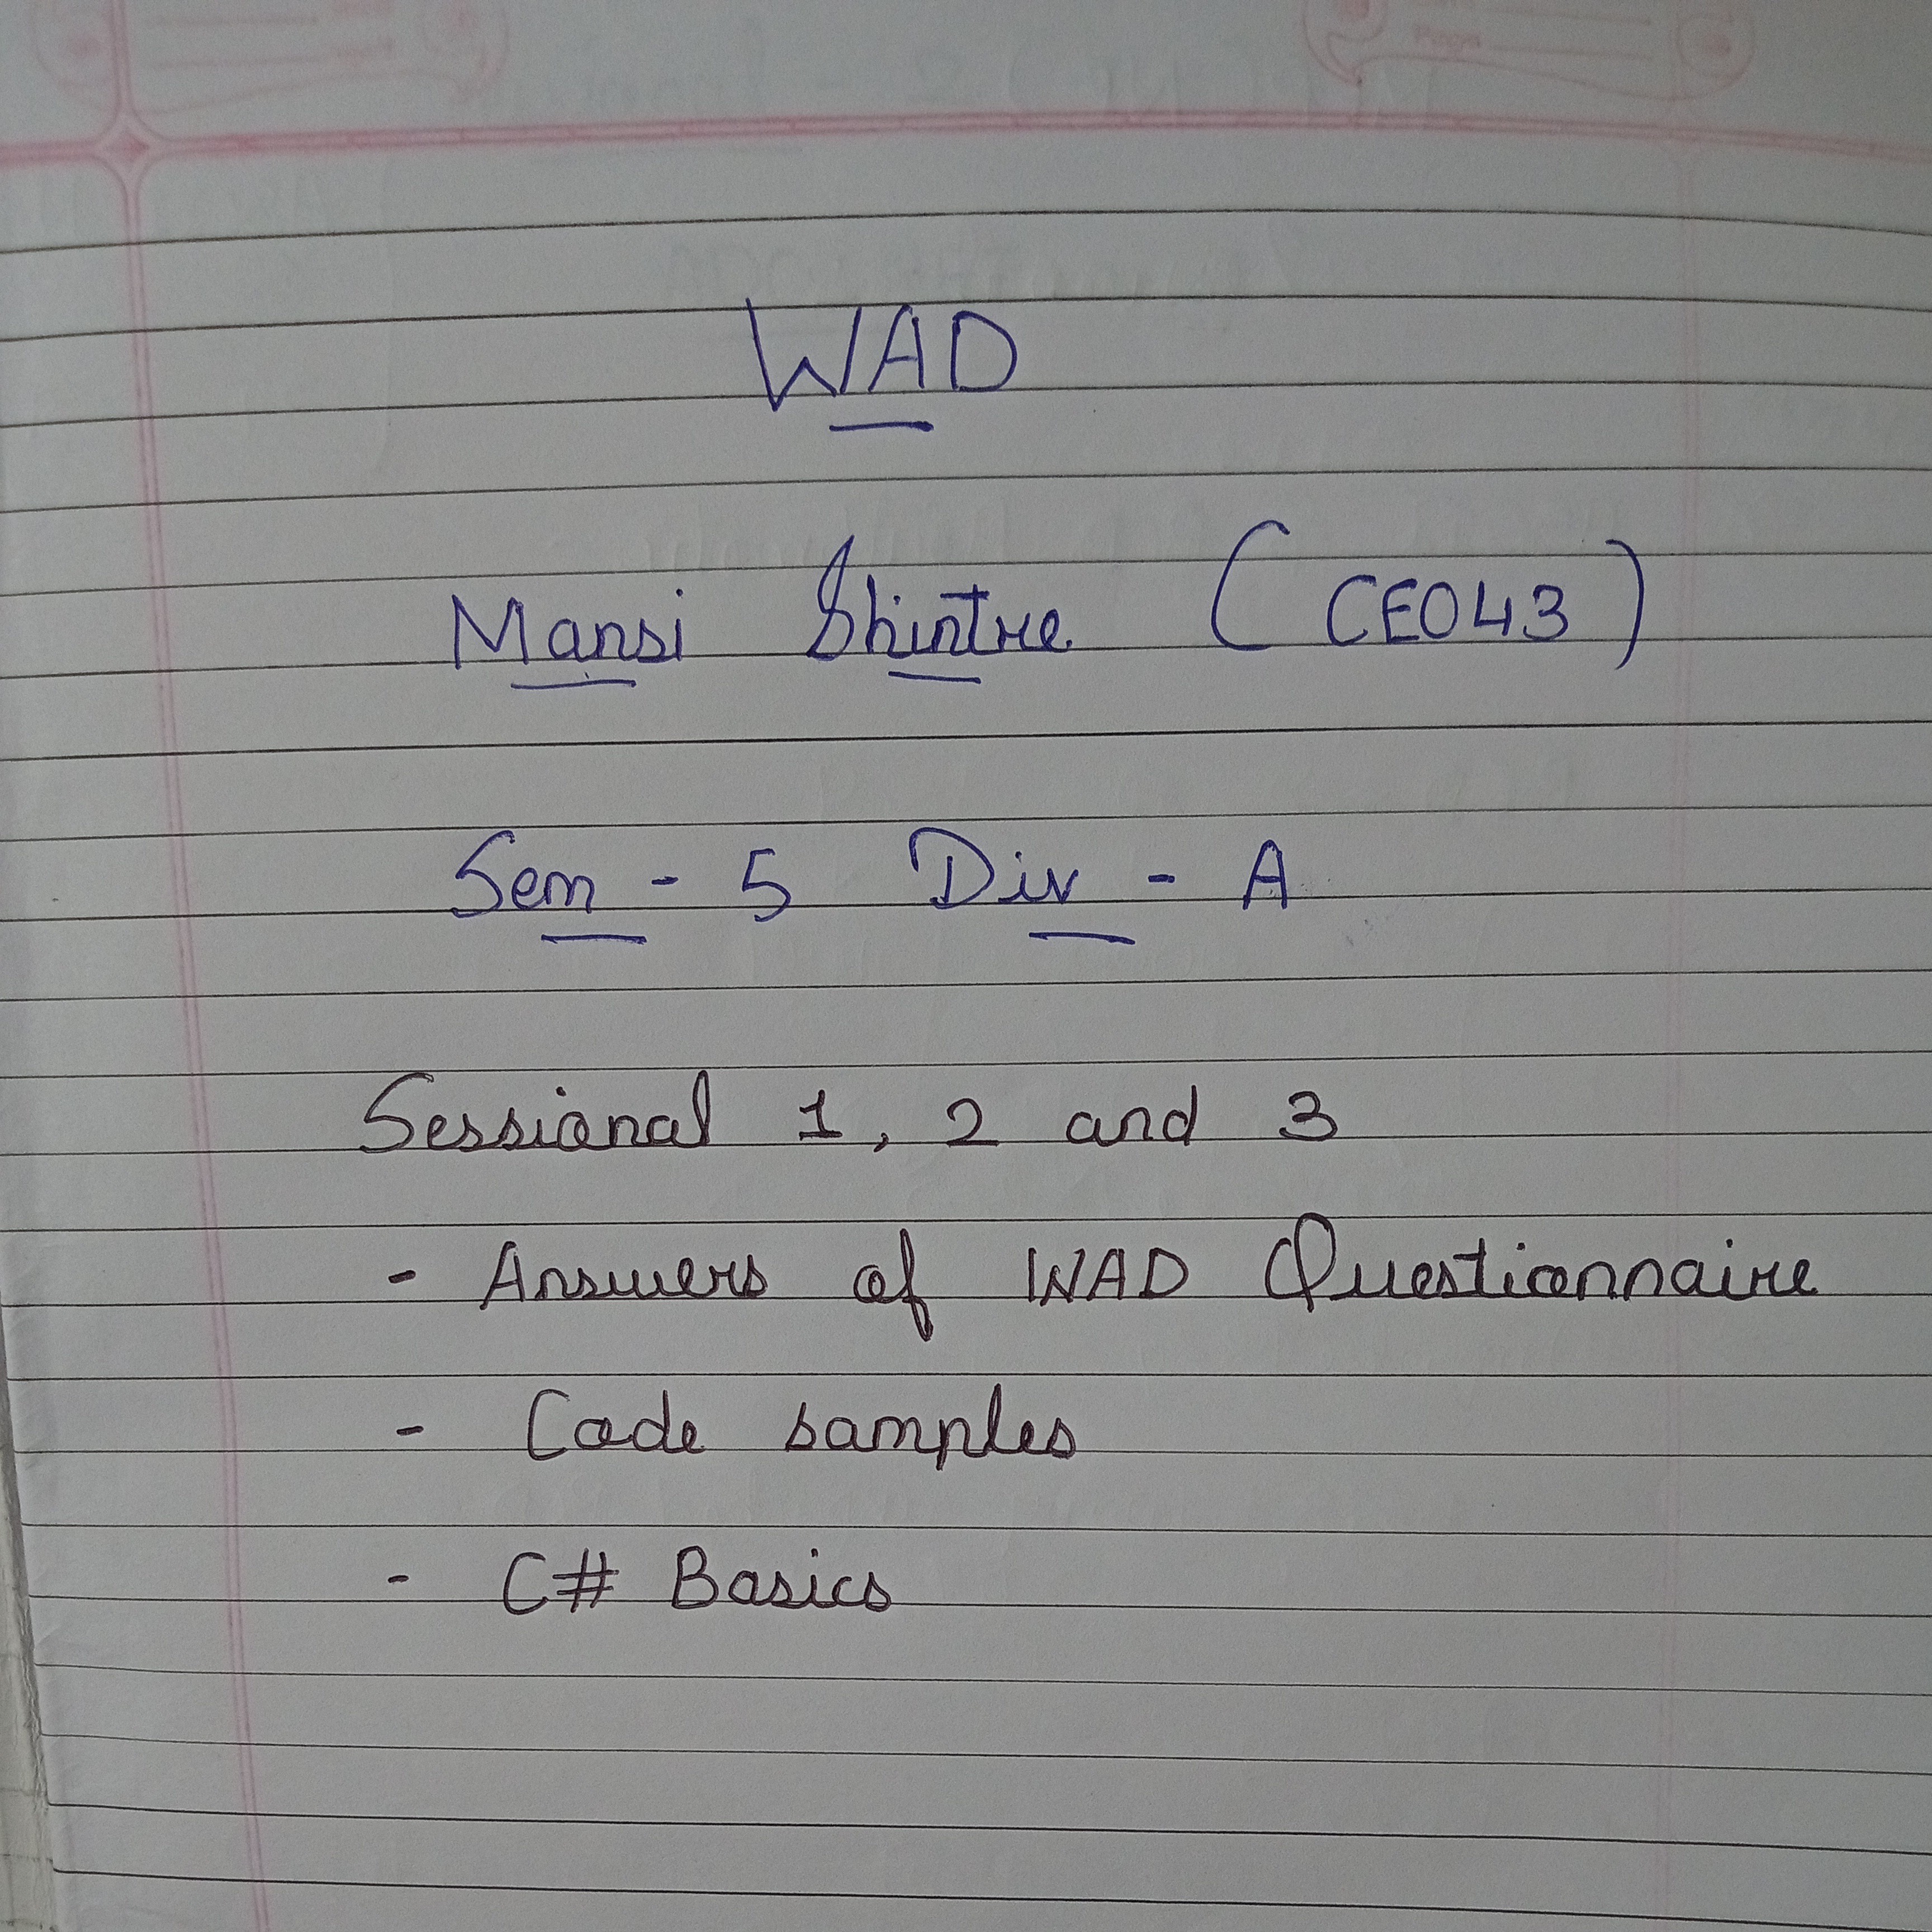 WAD
Mansi Shintre (CE043)
Sem - 5 Div - A
Sessional 1, 2 and 3
- Answers of WAD Questionnaire
- Code samples
- C# Basics